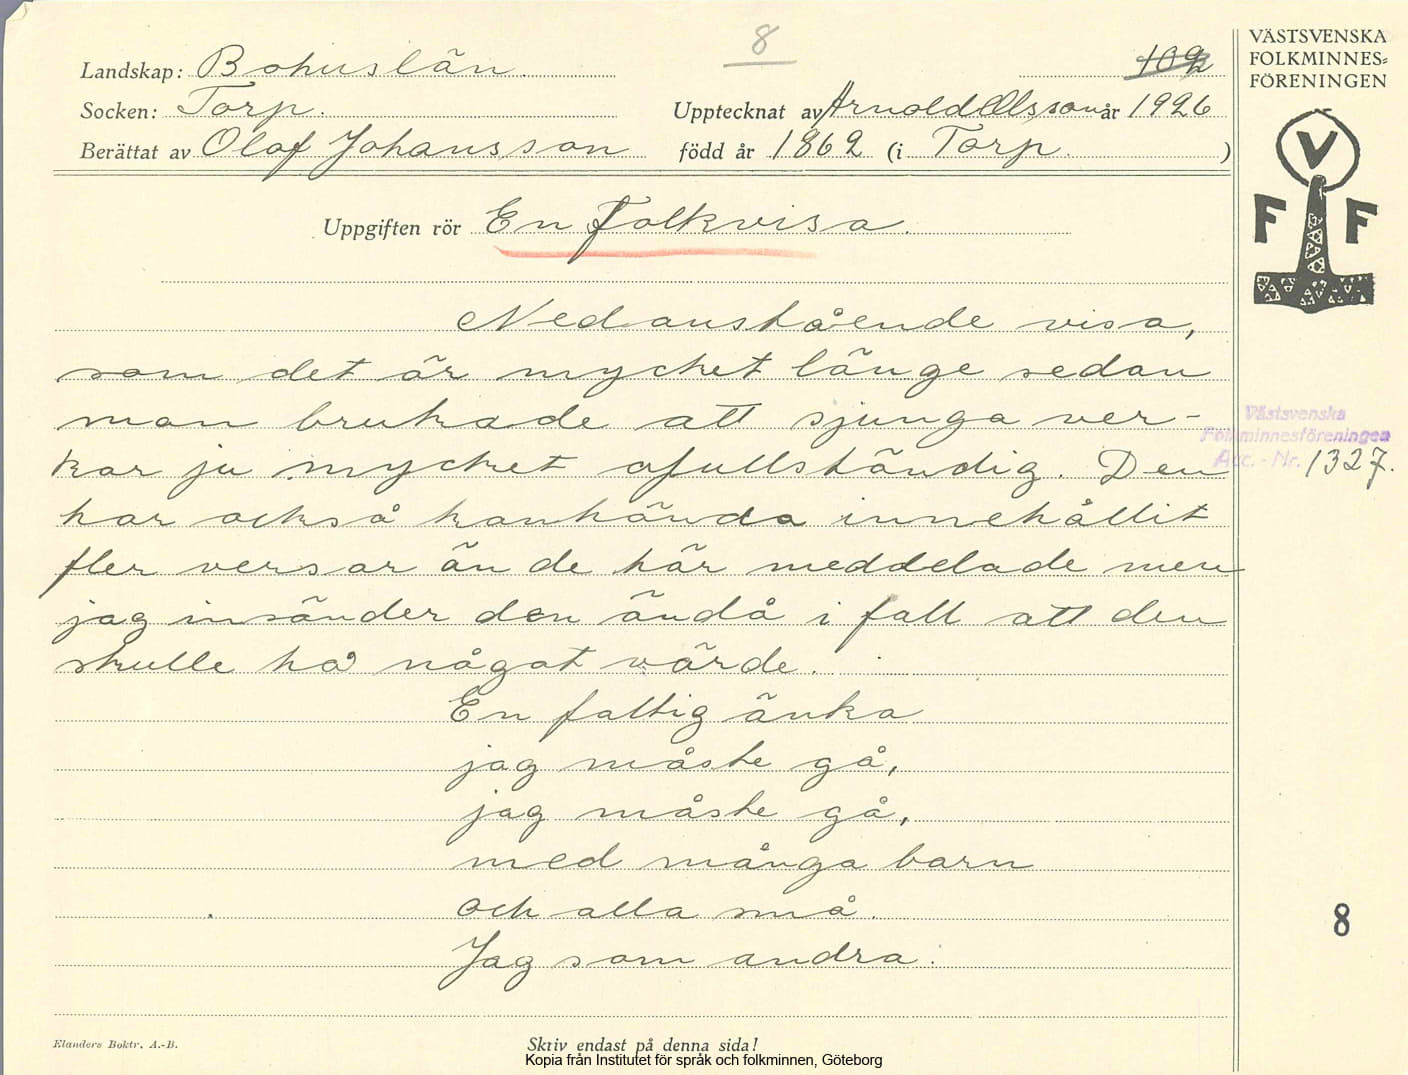 8
109
VÄSTSVENSKA
FOLKMINNES=
FÖRENINGEN
Landskap: Bohuslän.
Socken: Torp. Upptecknat av Arnold Olsson år 1926
Berättat av Olof Johansson född år 1862 (i Torp. )
V
F F
Uppgiften rör En folkvisa.
Nedanstående visa,
som det är mycket länge sedan
man brukade att sjunga ver-
kar ju mycket ofullständig. Den
har också kanhända innehållit
fler versar än de här meddelade men
jag insänder den ändå i fall att den
skulle ha något värde.
Västsvenska
Folkminnesföreningen
Acc. - Nr. 1327.
En fattig änka
jag måste gå,
jag måste gå,
med många barn
och alla små.
Jag som andra.
8
Elanders Boktr. A.-B.
Skriv endast på denna sida!
Kopia från Institutet för språk och folkminnen, Göteborg